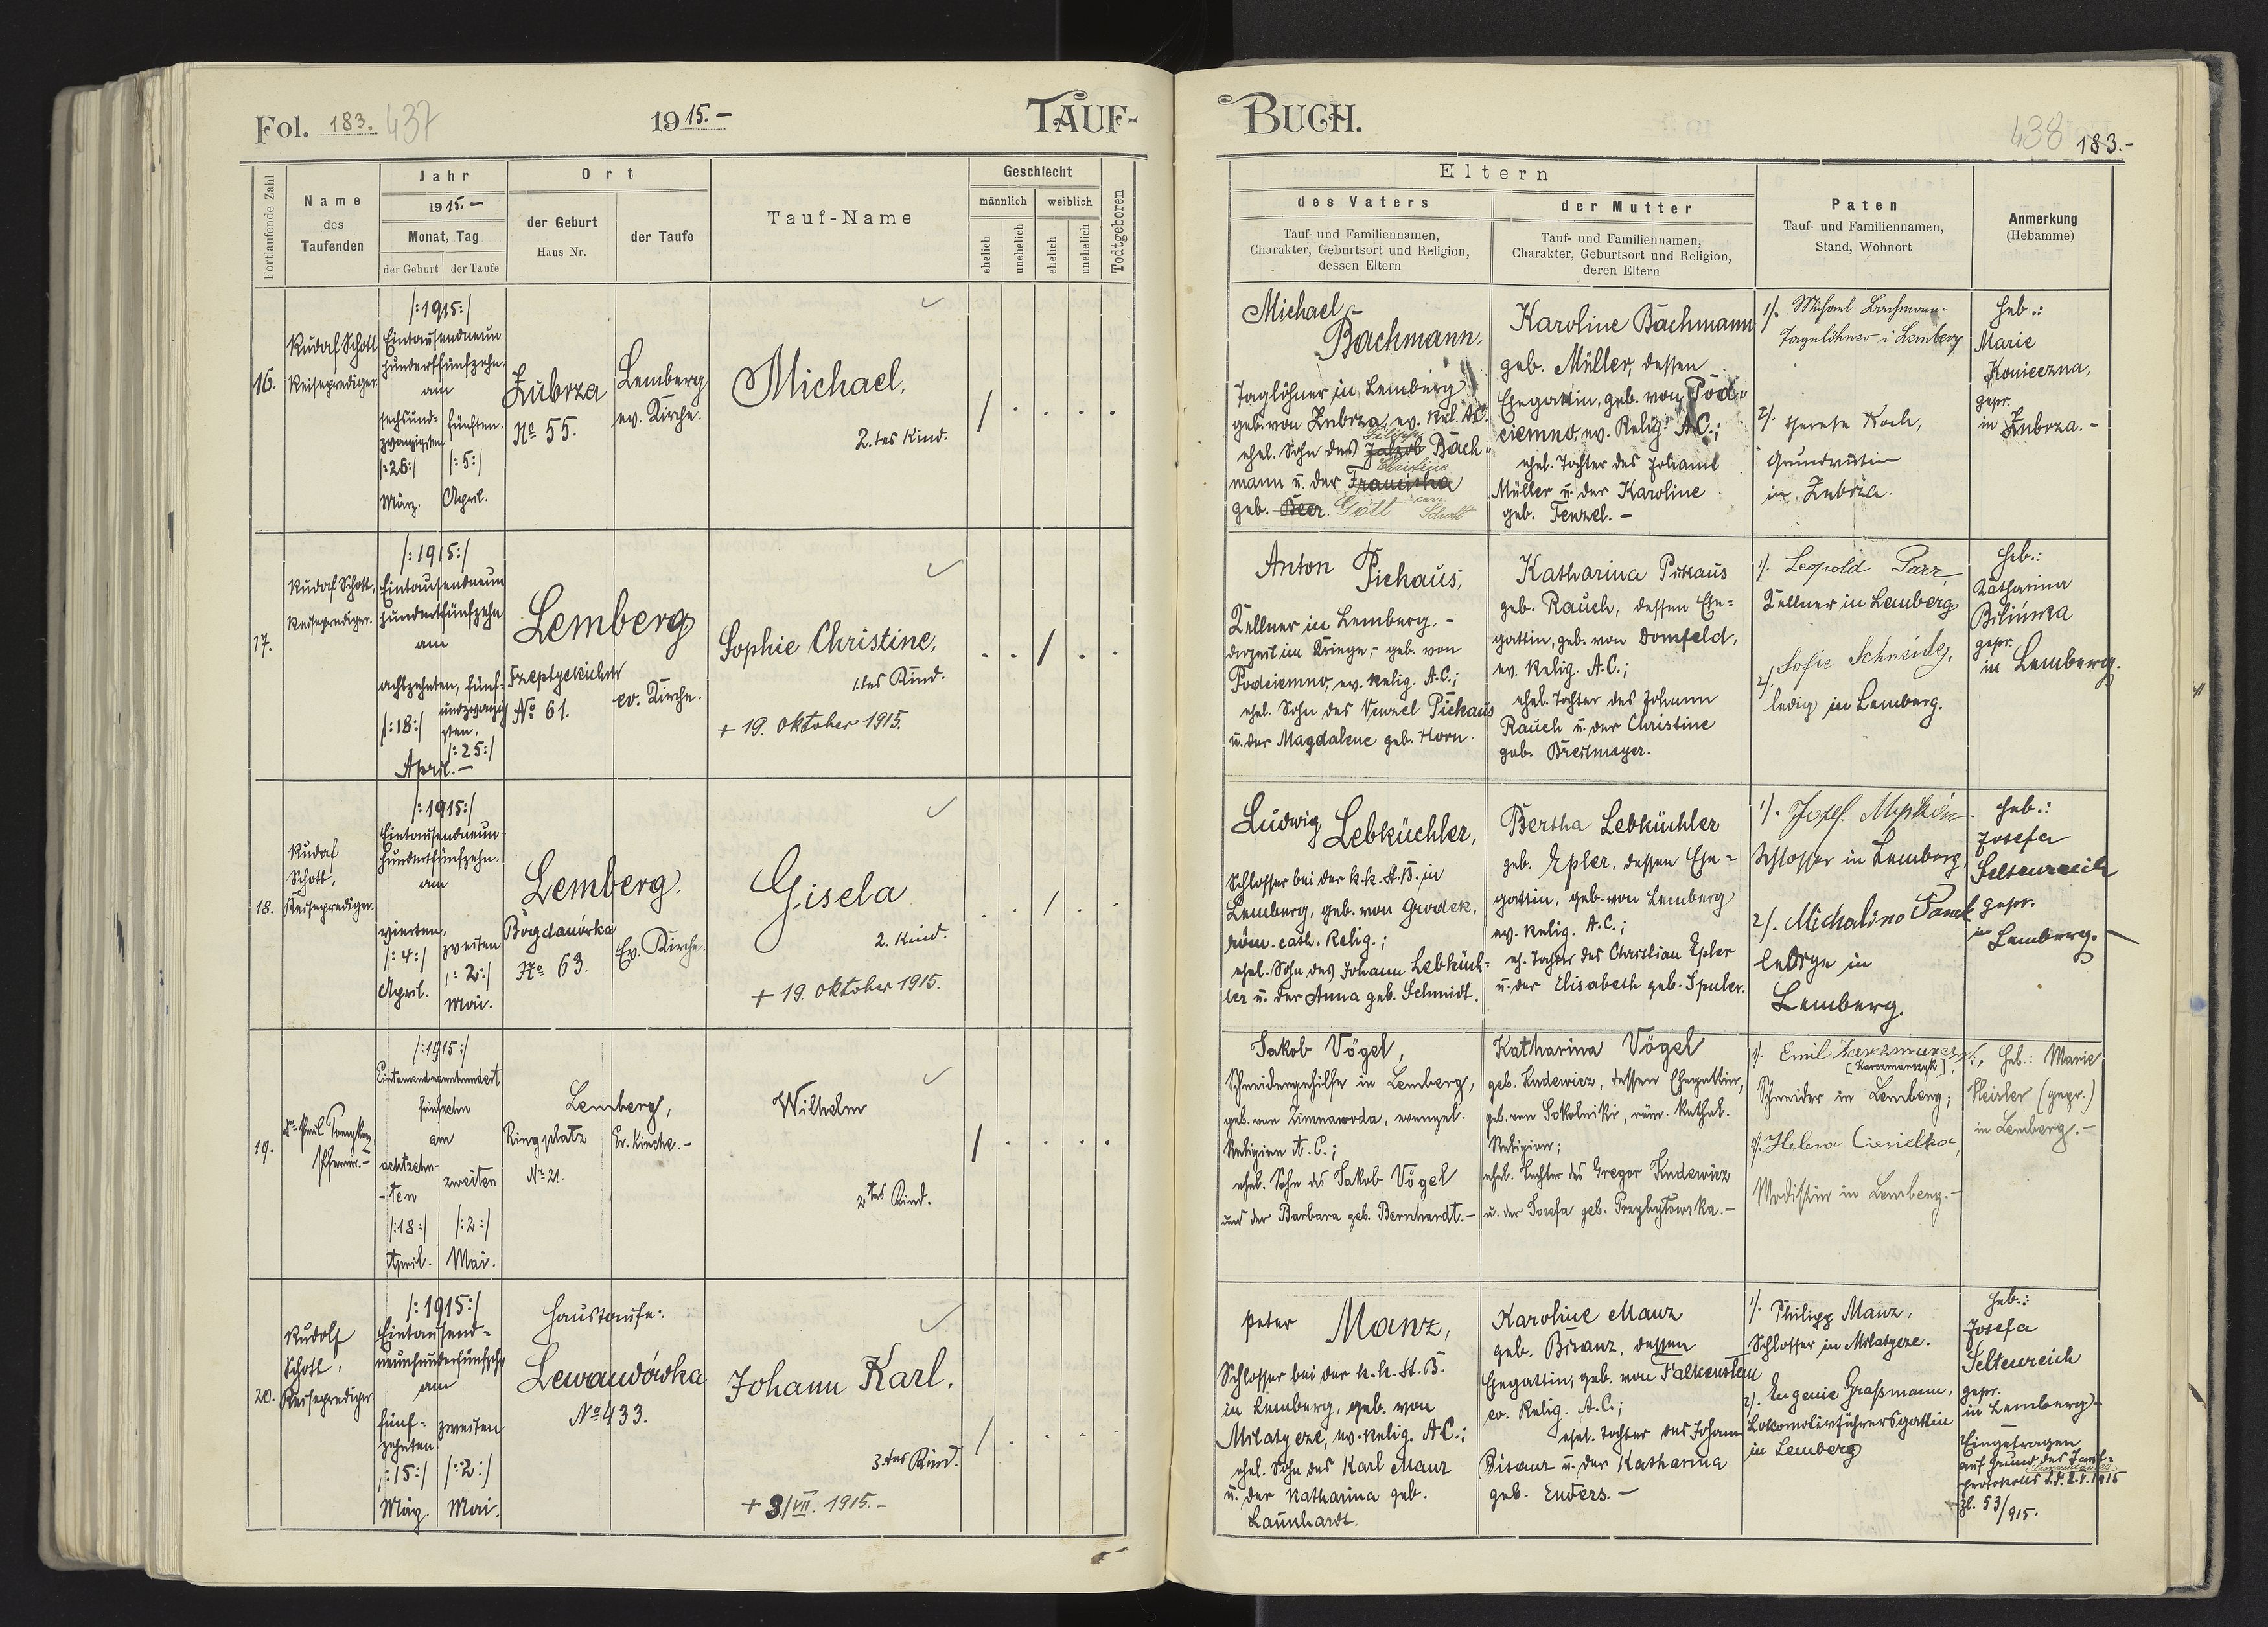 Fol. 183. 437
1915.-
TAUF-
Fortlaufende Zahl
Name
des
Taufenden
Jahr
1915.-
Monat, Tag
der Geburt
der Taufe
Ort
der Geburt
Haus Nr.
der Taufe
Tauf-Name
Geschlecht
männlich
weiblich
ehelich
unehelich
ehelich
unehelich
Todtgeboren
16.
Rudolf Schott
Reiseprediger
/:1915:/
Eintausendneun
hundertfünfzehn
am
sechsund-
zwanzigsten
/:26:/
März.
fünften.
/:5:/
April.
Zubrza
No 55.
Lemberg
ev. Kirche.
Michael,
2.tes Kind.
17.
Rudolf Schott,
Reiseprediger.
/:1915:/
Eintausendneun
hundertfünfzehn
am
achtzehnten,
/:18:/
fünf-
undzwanzig
sten,
/:25:/
April.-
Lemberg
No 61.
ev. Kirche.
Sophie Christine,
1.tes Kind.
+ 19. Oktober 1915.
18.
Rudolf
Schott,
Reiseprediger.
/:1915:/
Eintausendneun-
hundertfünfzehn.
am
vierten,
/:4:/
April.
zweiten
/:2:/
Mai.
Lemberg.
Bogdanówka
No 63.
Ev. Kirche.
Gisela
2. Kind.
+ 19. Oktober 1915.
19.
Pfarrer.-
/:1915:/
Eintausendneunhundert
fünfzehn
am
achtzehn-
-ten
/:18:/
April.
zweiten
/:2:/
Mai.
Lemberg,
Ringplatz
No 21.
Ev. Kirche.-
Wilhelm
2tes Kind.
20.
Rudolf
Schott,
Reiseprediger
/:1915:/
Eintausend-
neunhundertfünfzehn
am
fünf-
zehnten
/:15:/
März.
zweiten
/:2:/
Mai.
Haustaufe:
Lewandówka
No 433.
Johann Karl.
3.tes Kind.
+ 3/VII. 1915.-
BUCH.
438 183.-
Eltern
des Vaters
Tauf- und Familiennamen,
Charakter, Geburtsort und Religion,
dessen Eltern
der Mutter
Tauf- und Familiennamen,
Charakter, Geburtsort und Religion,
deren Eltern
Paten
Tauf- und Familiennamen,
Stand, Wohnort
Anmerkung
(Hebamme)
Michael
Bachmann,
Taglöhner in Lemberg
geb. von Zubrza, ev. Rel. A.C.
ehel. Sohn des Jakob Bach-
mann u. der Franziska
Christine
geb. Beer. Gött
Karoline Bachmann
geb. Müller, dessen
Ehegattin, geb. von Pod-
ciemno, ev. Relig. A.C.;
ehel. Tochter des Johann
Müller u. der Karoline
geb. Fenzel.-
1/. Michael Bachmann-
Tagelöhner i Lemberg
2/. Therese Koch,
Grundwirtin
in Zubrza.
Heb.:
Marie
Konieczna,
gepr.
in Zubrza.-
Anton Pichaus,
Kellner in Lemberg.-
derzeit im Kriege,- geb. von
Podciemno, ev. Relig. A.C.;
ehel. Sohn des Wenzel Pichaus
u. der Magdalene geb. Horn.
Katharina Pichaus
geb. Rauch, dessen Ehe-
gattin, geb. von Dornfeld,
ev. Relig. A.C.;
ehel. Tochter des Johann
Rauch u. der Christine
geb. Breitmeyer.
1/. Leopold Parr
Kellner in Lemberg
2/. Sofie Schneider,
ledig in Lemberg.
Heb.:
Katharina
Bilińska
gepr.
in Lemberg.
Ludwig Lebküchler,
Schlosser bei der k.k. St.B. in
Lemberg, geb. von Grodek,
röm. cath. Relig.;
ehel. Sohn des Johann Lebküch-
ler u. der Anna geb. Schmidt.
Bertha Lebküchler
geb. Epler, dessen Ehe-
gattin, geb. von Lemberg
ev. Relig. A.C.;
eh. Tochter des Christian Epler
u. der Elisabeth geb. Spuler.
1/. Josef
Schlosser in Lemberg,
2/. Michalina
ledige in
Lemberg.
Heb.:
Josefa
Seltenreich
gepr.
in Lemberg.-
Jakob Vögel,
Schneidergehilfe in Lemberg,
geb. von Zimnawoda, evangel.
Religion A.C.;
ehel. Sohn des Jakob Vögel
und der Barbara geb. Bernhardt.-
Katharina Vögel
geb. Ludewicz, dessen Ehegattin,
geb. von Sokolniki, röm. kathol.
Religion;
ehel. Tochter des Gregor Ludewicz
u. der Josefa geb. Przybyłowska.-
1/. Emil Karczmarczyk,
[Karczmarczyk]
Schneider in Lemberg;
2/. Helena Ciesielka,
Modistin in Lemberg.-
Heb.: Marie
Heisler (gepr.)
in Lemberg.-
Peter Manz,
Schlosser bei der k.k. St.B.
in Lemberg, geb. von
Milatycze, ev. Relig. A.C.;
ehel. Sohn des Karl Manz
u. der Katharina geb.
Launhardt.
Karoline Manz
geb. Bisanz, dessen
Ehegattin, geb. von Falkenstein
ev. Relig. A.C.;
ehel. Tochter des Johann
Bisanz u. der Katharina
geb. Enders.-
1/. Philipp Manz,
Schlosser in Milatycze.
2/. Eugenie Graßmann,
Lokomotivführersgattin
in Lemberg
Heb.:
Josefa
Seltenreich
gepr.
in Lemberg.-
Eingetragen
auf Grund des Tauf-
protokolls d.d. 2.V.1915
Zl. 53/915.